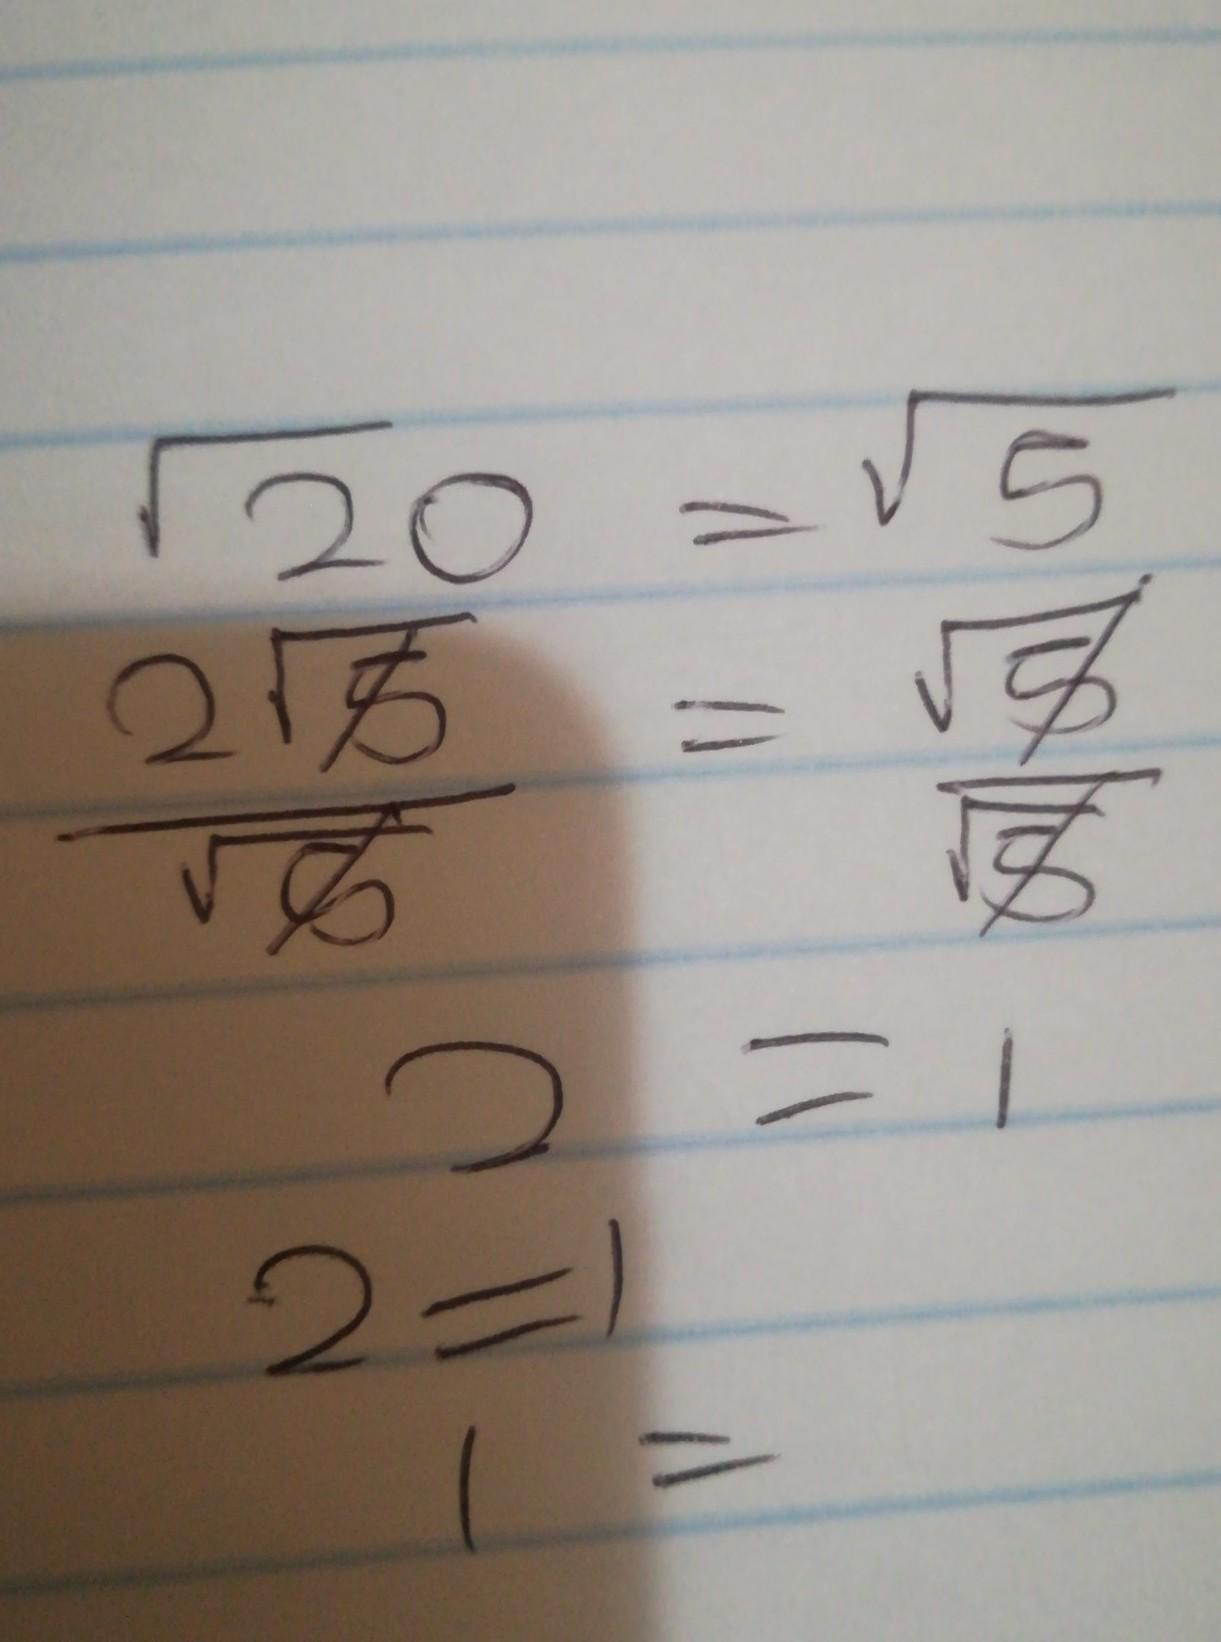 √20 = √5
2√5 = √5
√5 √5
2 = 1
2 = 1
1 =